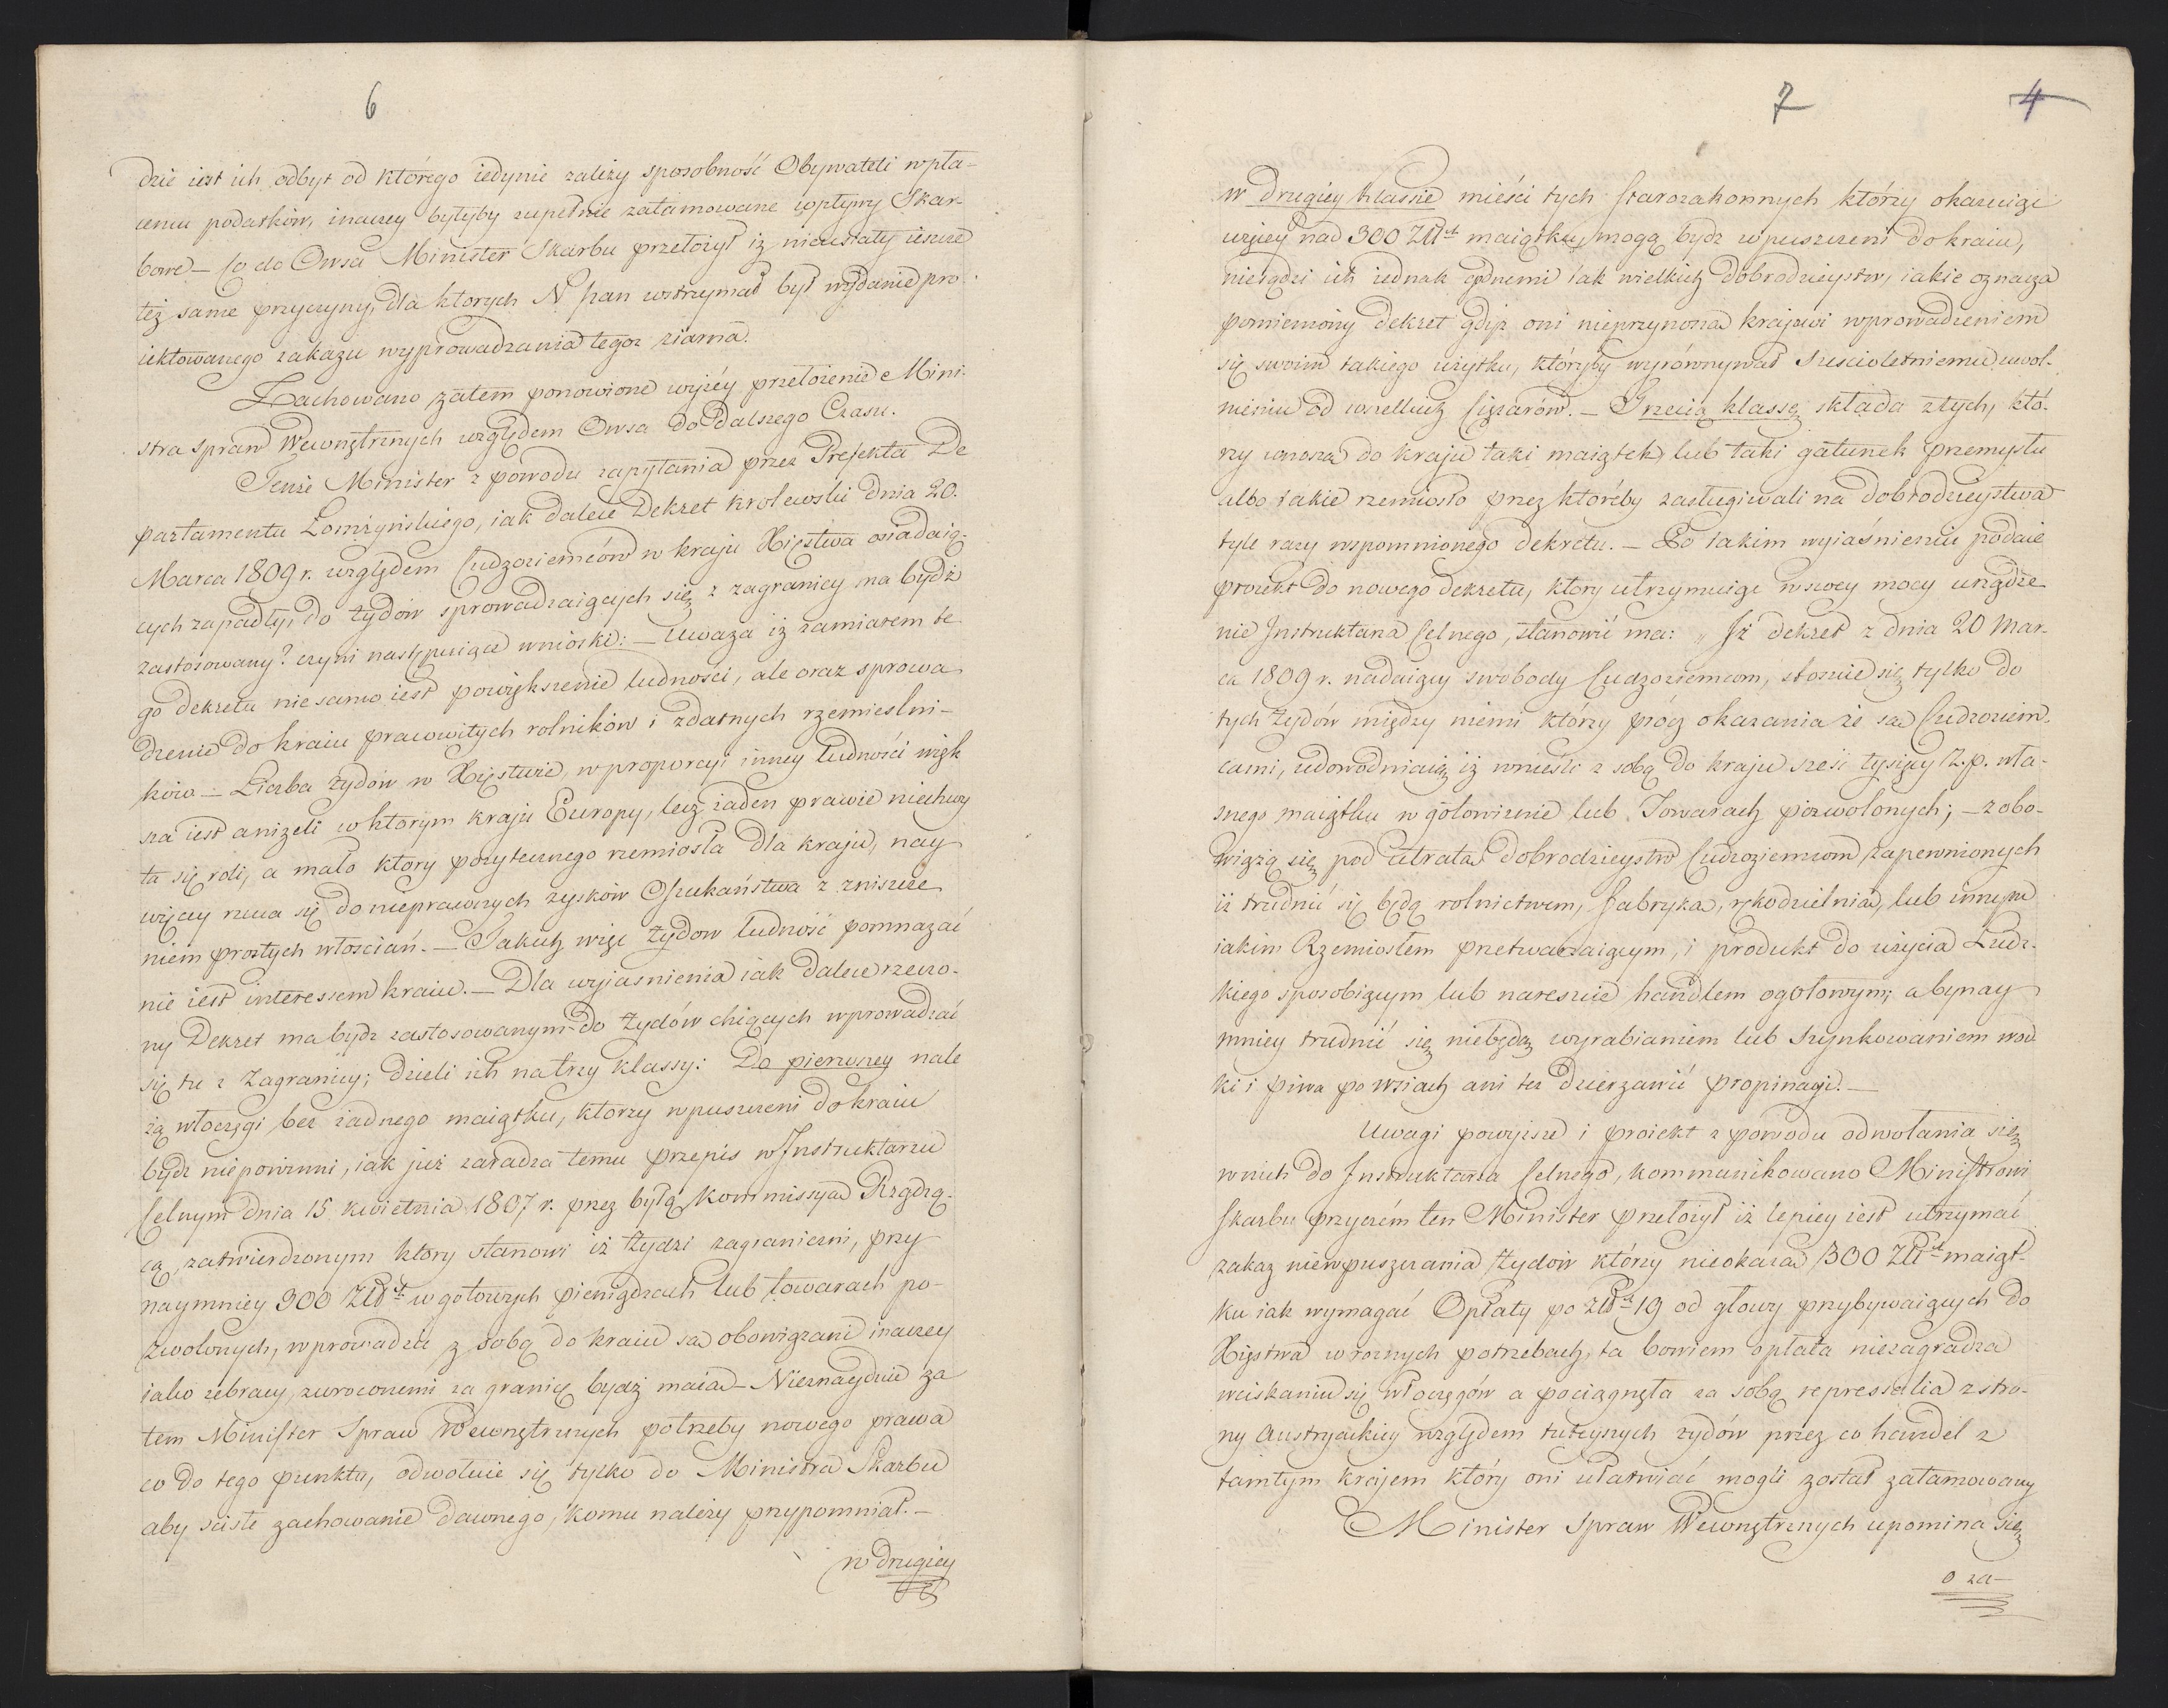 6
dzie iest ich odbyt od którego iedynie zależy sposobność Obywateli wpła-
ceniu podatków, inaczey byłyby zupełnie zatamowane wpływy Skar-
bowe — Co do Owsa Minister Skarbu przełożył iż nieustały ieszcze
też same przyczyny, dla ktorych N Pan wstrzymał był wydanie pro
iektowanego zakazu wyprowadzania tegoz ziarna.
Zachowano zatem ponowione wyżéy przełożenie Mini-
stra Spraw Wewnętrznych względem Owsa do dalszego Czasu.
Tenże Minister z powodu zapytania przez Prefekta De
partamentu Łomżyńskiego, iak dalece Dekret Krolewski dnia 20.
Marca 1809 r. względem Cudzoziemców w kraju Xięstwa osiadaią-
cych zapadły, do żydów sprowadzaiących się z zagranicy ma bydź
zastosowany? czyni nastempuiące wnioski: — Uwaza iz zamiarem te
go dekretu nie samo iest powiększenie ludności, ale oraz sprowa
dzenie do kraiu pracowitych rolników i zdatnych rzemieslni-
ków — Liczba żydów w Xięstwie, w proporcyi inney ludności więk
sza iest aniżeli w ktorym kraju Europy, lecz żaden prawie niechwy
ta się roli, a mało ktory pożytecznego rzemiosła dla kraju, nay
więcey rzuca się do nieprawnych zysków Oszukaństwa z zniszcze
niem prostych włoscian. — Takich więc żydow ludność pomnażać
nie iest interessem kraiu. — Dla wyiasnienia iak dalece rzeczo-
ny Dekret ma bydz zastosowanym do żydów chcących wprowadzać
się tu z Zagranicy; dzieli ich na trzy klassy: Do pierwszey nale
żą włoczęgi bez żadnego maiątku, ktorzy wpuszczeni do kraiu
bydz niepowinni, iak już zaradza temu przepis w Instruktarzu
Celnym dnia 15 kwietnia 1807 r. przez byłą Kommissyą Rządzą-
cą, zatwierdzonym ktory stanowi iż żydzi zagraniczni, przy
naymniey 300 Złt w gotowych pieniądzach lub towarach po-
zwolonych, wprowadzić z sobą do kraiu są obowiązani inaczey
iako żebracy, zwroconemi za granicę bydź maią — Nieznayduie za
tem Minister Spraw Wewnętrznych potrzeby nowego prawa
co do tego punktu, odwołuie się tylko do Ministra Skarbu
aby sciste zachowanie dawnego, komu należy przypomniał. —
w drugiey
7
4
w drugiéy klassie mieści tych starozakonnych którzy okazuiąc
wyżey nad 300 Złt maiątku, mogą bydz wpuszczeni do kraiu,
niesądzi ich iednak godnemi tak wielkich dobrodzieystw, iakie oznacza
pomieniony dekret gdyż oni nieprzynoszą krajowi wprowadzeniem
się swoim takiego użytku, któryby wyrównywał sześcioletniemu uwol-
nieniu od wszelkich Ciężarów. — Trzecią klassę składa z tych, któ-
rzy wnoszą do kraju taki maiątek, lub taki gatunek przemysłu
albo takie rzemiosło przez któreby zasługiwali na dobrodzieystwa
tyle razy wspomnionego dekretu. — Po takim wyiaśnieniu podaie
proiekt do nowego dekretu, ktory utrzymuiąc w swoey mocy urządze
nie Instruktarza Celnego, stanowić ma: „Iż dekret z dnia 20 Mar-
ca 1809 r. nadaiący swobody Cudzoziemcom, stosuie się tylko do
tych żydów między niemi którzy prócz okazania że są Cudzoziem-
cami, udowodniaią iż wnieśli z sobą do kraju sześć tysięcy Z.p. wła-
snego maiątku w gotowiznie lub Towarach pozwolonych; — zobo-
wiążą się pod utratą dobrodzieystw Cudzoziemcom zapewnionych
iż trudnić się będą rolnictwem, fabryką, rękodzielnią, lub innym
iakim Rzemiosłem przetwarzaiącym, i produkt do użycia Ludz-
kiego sposobiącym lub nareszcie handlem ogołowym; a bynay
mniey trudnić się niebędą wyrabianiem lub szynkowaniem wod
ki i piwa po wsiach ani też dzierzawić propinacyi. —
Uwagi powyższe i proiekt z powodu odwołania się
w nich do Instruktarza Celnego, kommunikowano Ministrowi
Skarbu przyczém ten Minister przełożył iż lepiey iest utrzymać
zakaz niewpuszczania żydow którzy nieokażą 300 Złt maiąt-
ku iak wymagać Opłaty po złt 19 od głowy przybywaiących do
Xięstwa w roznych potrzebach, ta bowiem opłata niezagradza
wciskaniu się włoczęgów a pociągnęła za sobą repressalia z stro-
ny Austryackiey względem tuteyszych żydów przez co handel z
tamtym krajem który oni ułatwiać mogli został zatamowany
Minister Spraw Wewnętrznych upomina się
o za—